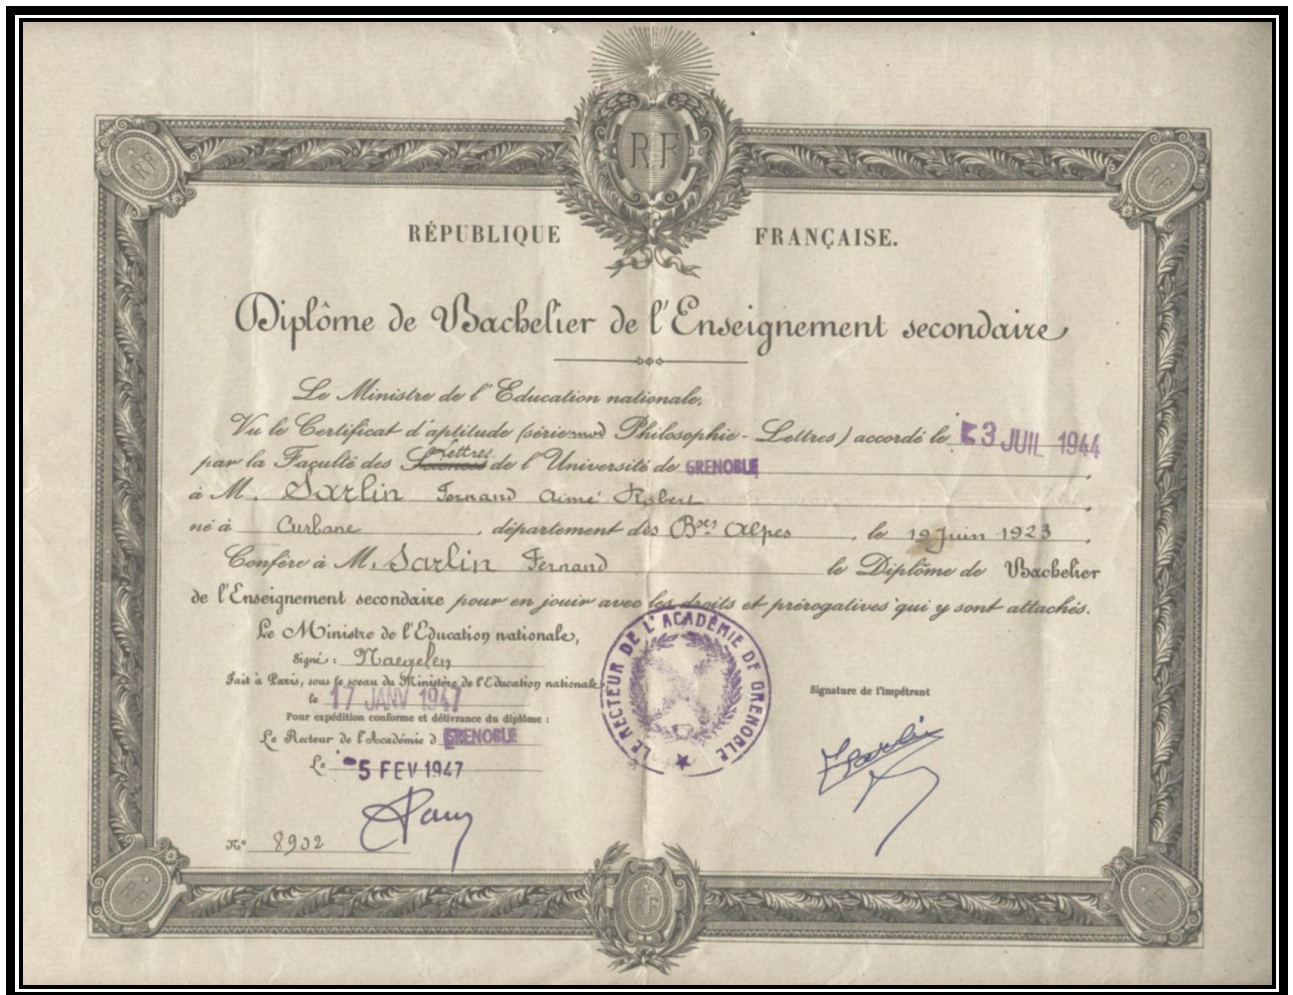 RF
RF
RF
RÉPUBLIQUE FRANÇAISE.
Diplôme de Bachelier de l'Enseignement secondaire
Le Ministre de l'Education nationale,
Vu le Certificat d'aptitude (série Philosophie-Lettres) accordé le 3 JUIL 1944
par la Faculté des Sciences Lettres de l'Université de GRENOBLE,
à M. Sarlin Fernand Aimé Robert,
né à Curbane, département des Bses Alpes, le 19 Juin 1923,
Confère à M. Sarlin Fernand le Diplôme de Bachelier
de l'Enseignement secondaire pour en jouir avec les droits et prérogatives qui y sont attachés.
Le Ministre de l'Education nationale,
Signé: Naegelen
Fait à Paris, sous le sceau du Ministère de l'Education nationale
le 17 JANV 1947
Pour expédition conforme et délivrance du diplôme :
Le Recteur de l'Académie d GRENOBLE
Le -5 FEV 1947
LE RECTEUR DE L'ACADÉMIE DE GRENOBLE
Signature de l'impétrant
FSarlin
N° 8902
RF
RF
RF